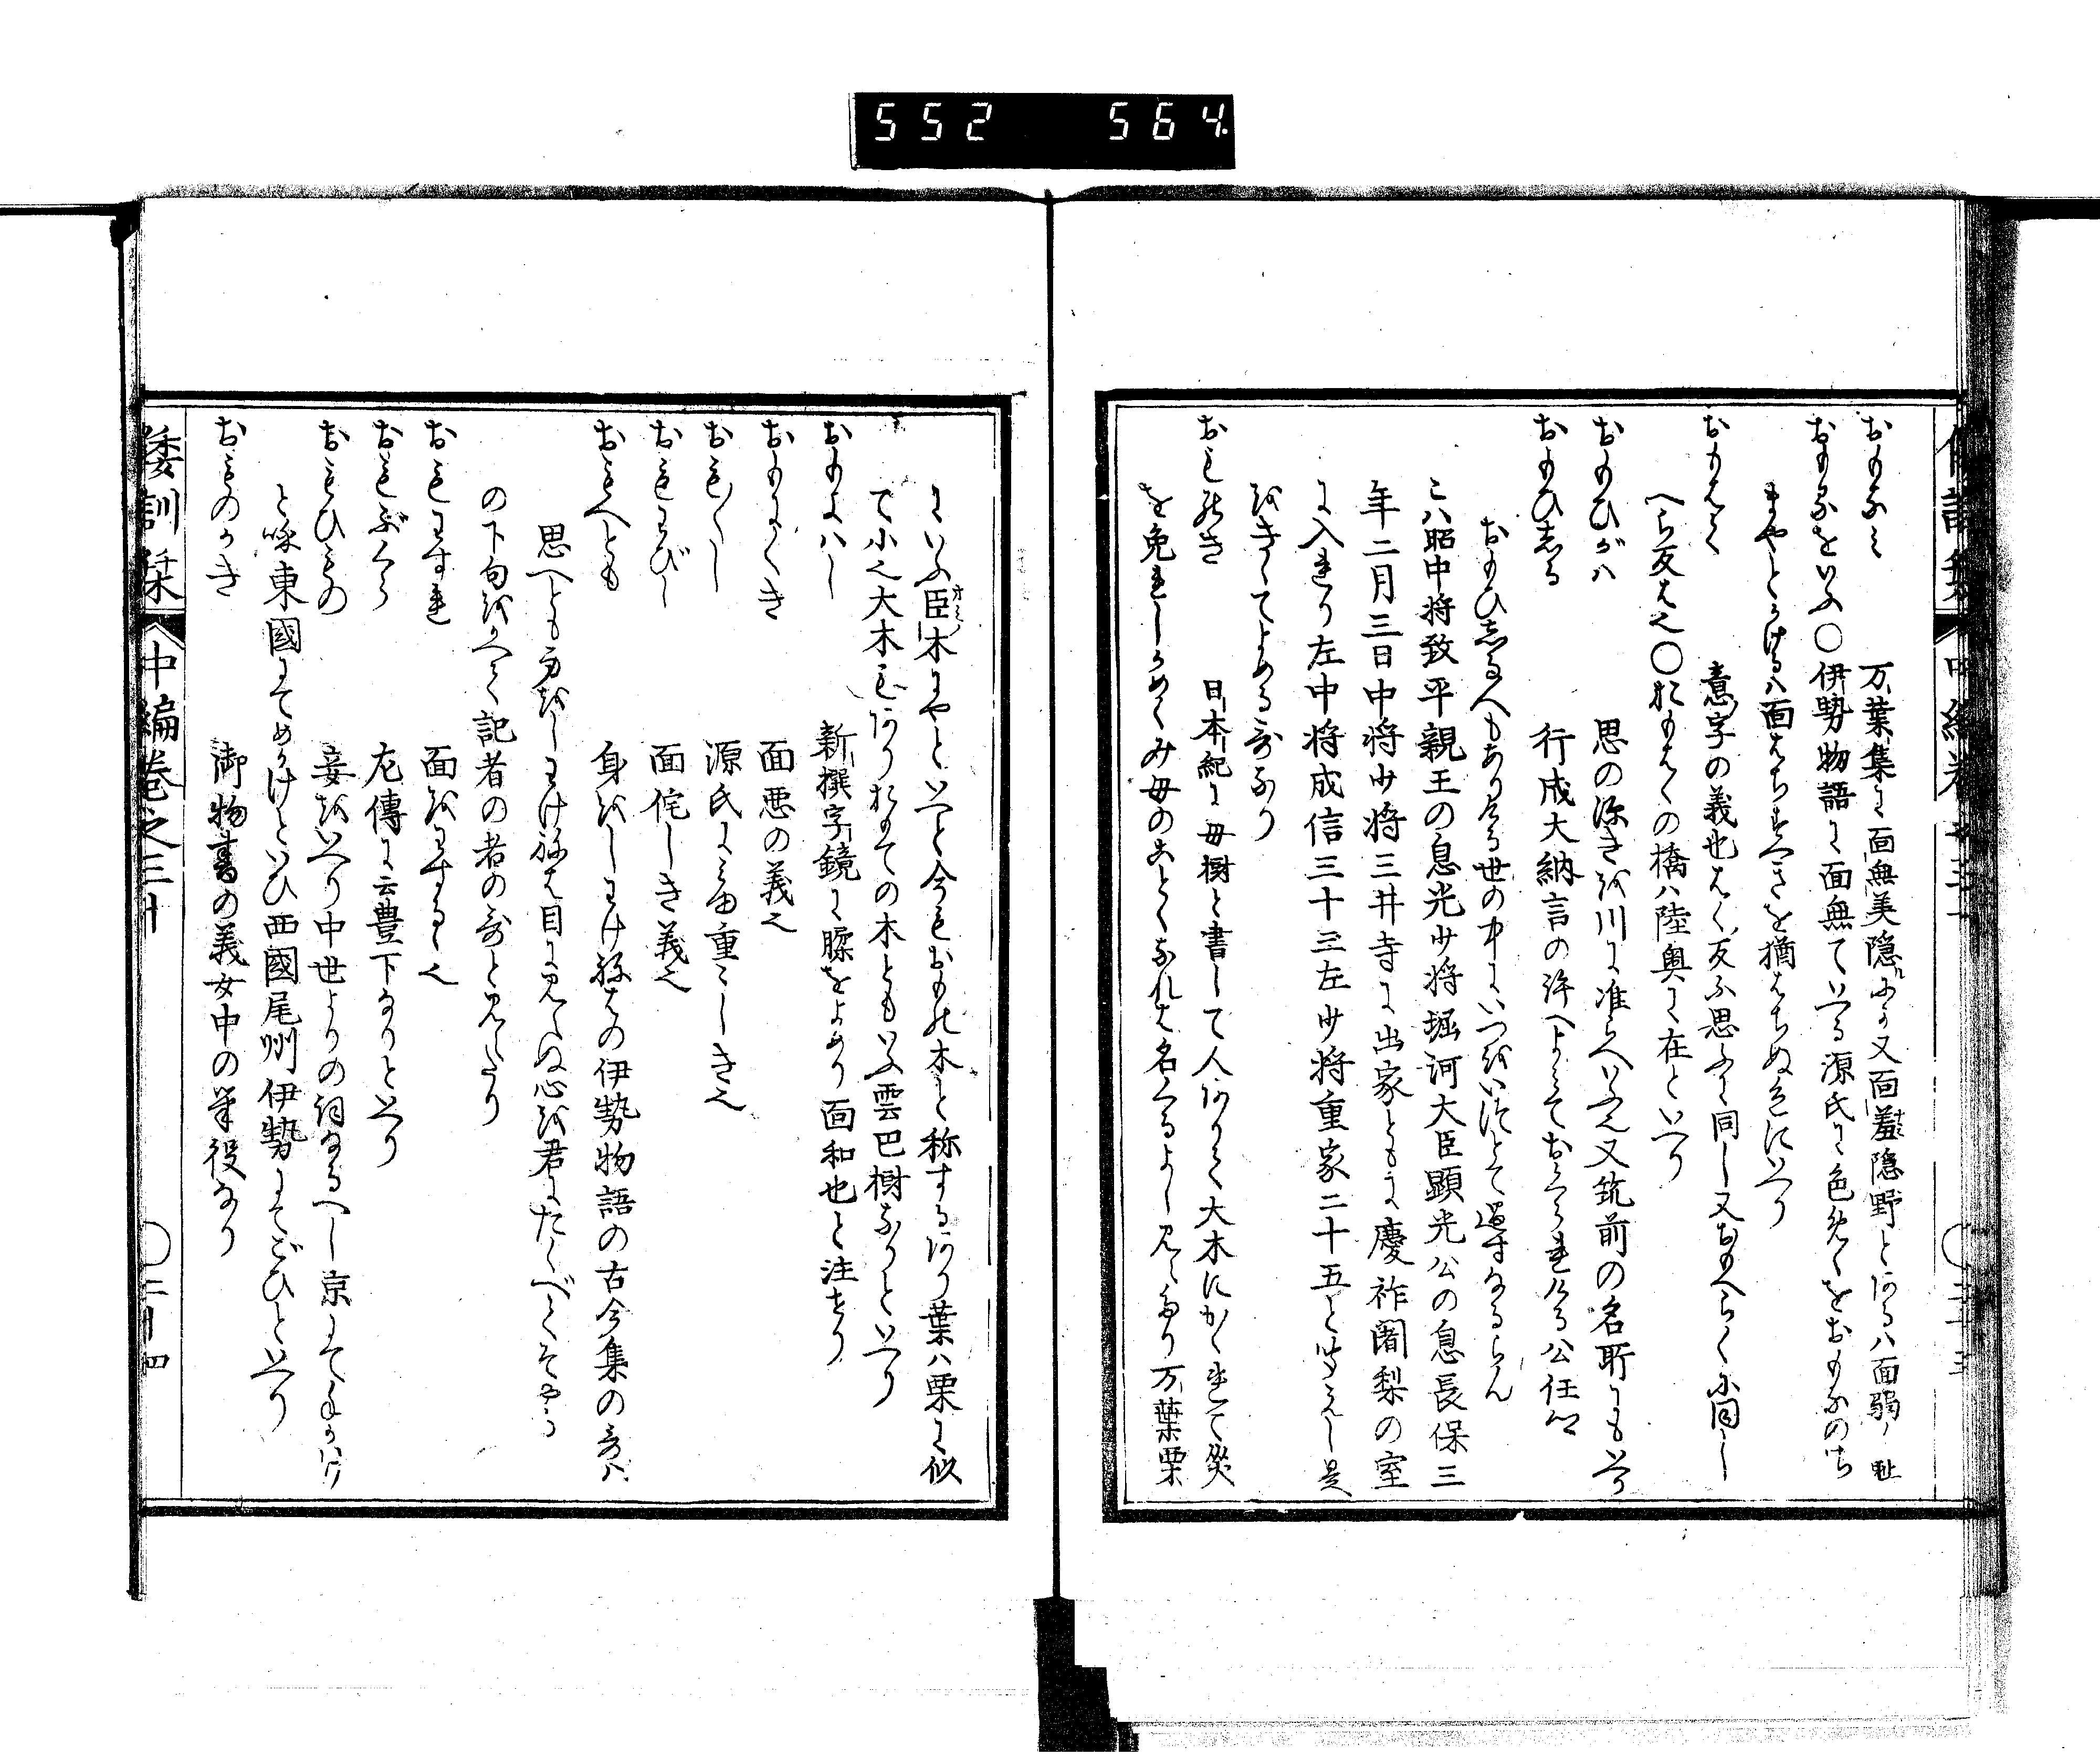 552 564
おもなみ 万葉集に面無美隠にか又面羞隠野とあるハ面弱ノ恥
おもなをいふ〇伊勢物語に面無ていへる源氏に色めくをおもなのち
まやとかけるハ面はちすへきを猶はちぬさまにいへり
おもはく 意字の義也はく反ふ思ふに同し又おもへらくに同し
へら反は也〇おもはくの橋ハ陸奥に在といへり
おもひがハ 思の深きを川に准らへいふ也又筑前の名所にもいへり
おもひしる 行成大納言の許へよみておくられける公任卿
おもひしる人もありける世の中にいつをいつとて過すなるらん
こハ昭中将致平親王の息光少将堀河大臣顕光公の息長保三
年二月三日中将少将三井寺に出家ともに慶祚闍梨の室
に入れり左中将成信三十三左少将重家二十五と聞えし是
をきゝてよめる哥なり
おものき 日本紀に母樹と書して人ありて大木にかくれて災
を免れしかめぐみ母のことくなれは名くるよし見えたり万葉栗
にいふ臣木にやといへと今もおもの木と称するあり葉ハ栗に似
て小く大木もありおもての木ともいふ雲巴樹なりといへり
おもよハし 新撰字鏡に䐓をよめり面和也と注せり
おもにくき 面悪の義也
おも〱し 源氏にみゆ重こしき也
おもわびし 面侘しき義也
おもへとも 身をしわけねはの伊勢物語の古今集の哥ハ
思へとも身をしわけねは目に見えぬ心を君にたくへてそやる
の下句をかへて記者の者の哥と見えたり
おもわすれ 面をわするゝ也
おもぶくら 左傳に云豊下なりといへり
おもひもの 妾をいへり中世よりの詞なるへし京にててかけ
と唹東國にてめかけといひ西國尾州伊勢にてごひといへり
おものかき 御物書の義女中の筆役なり
倭訓栞 中編巻之三十 〇二十四